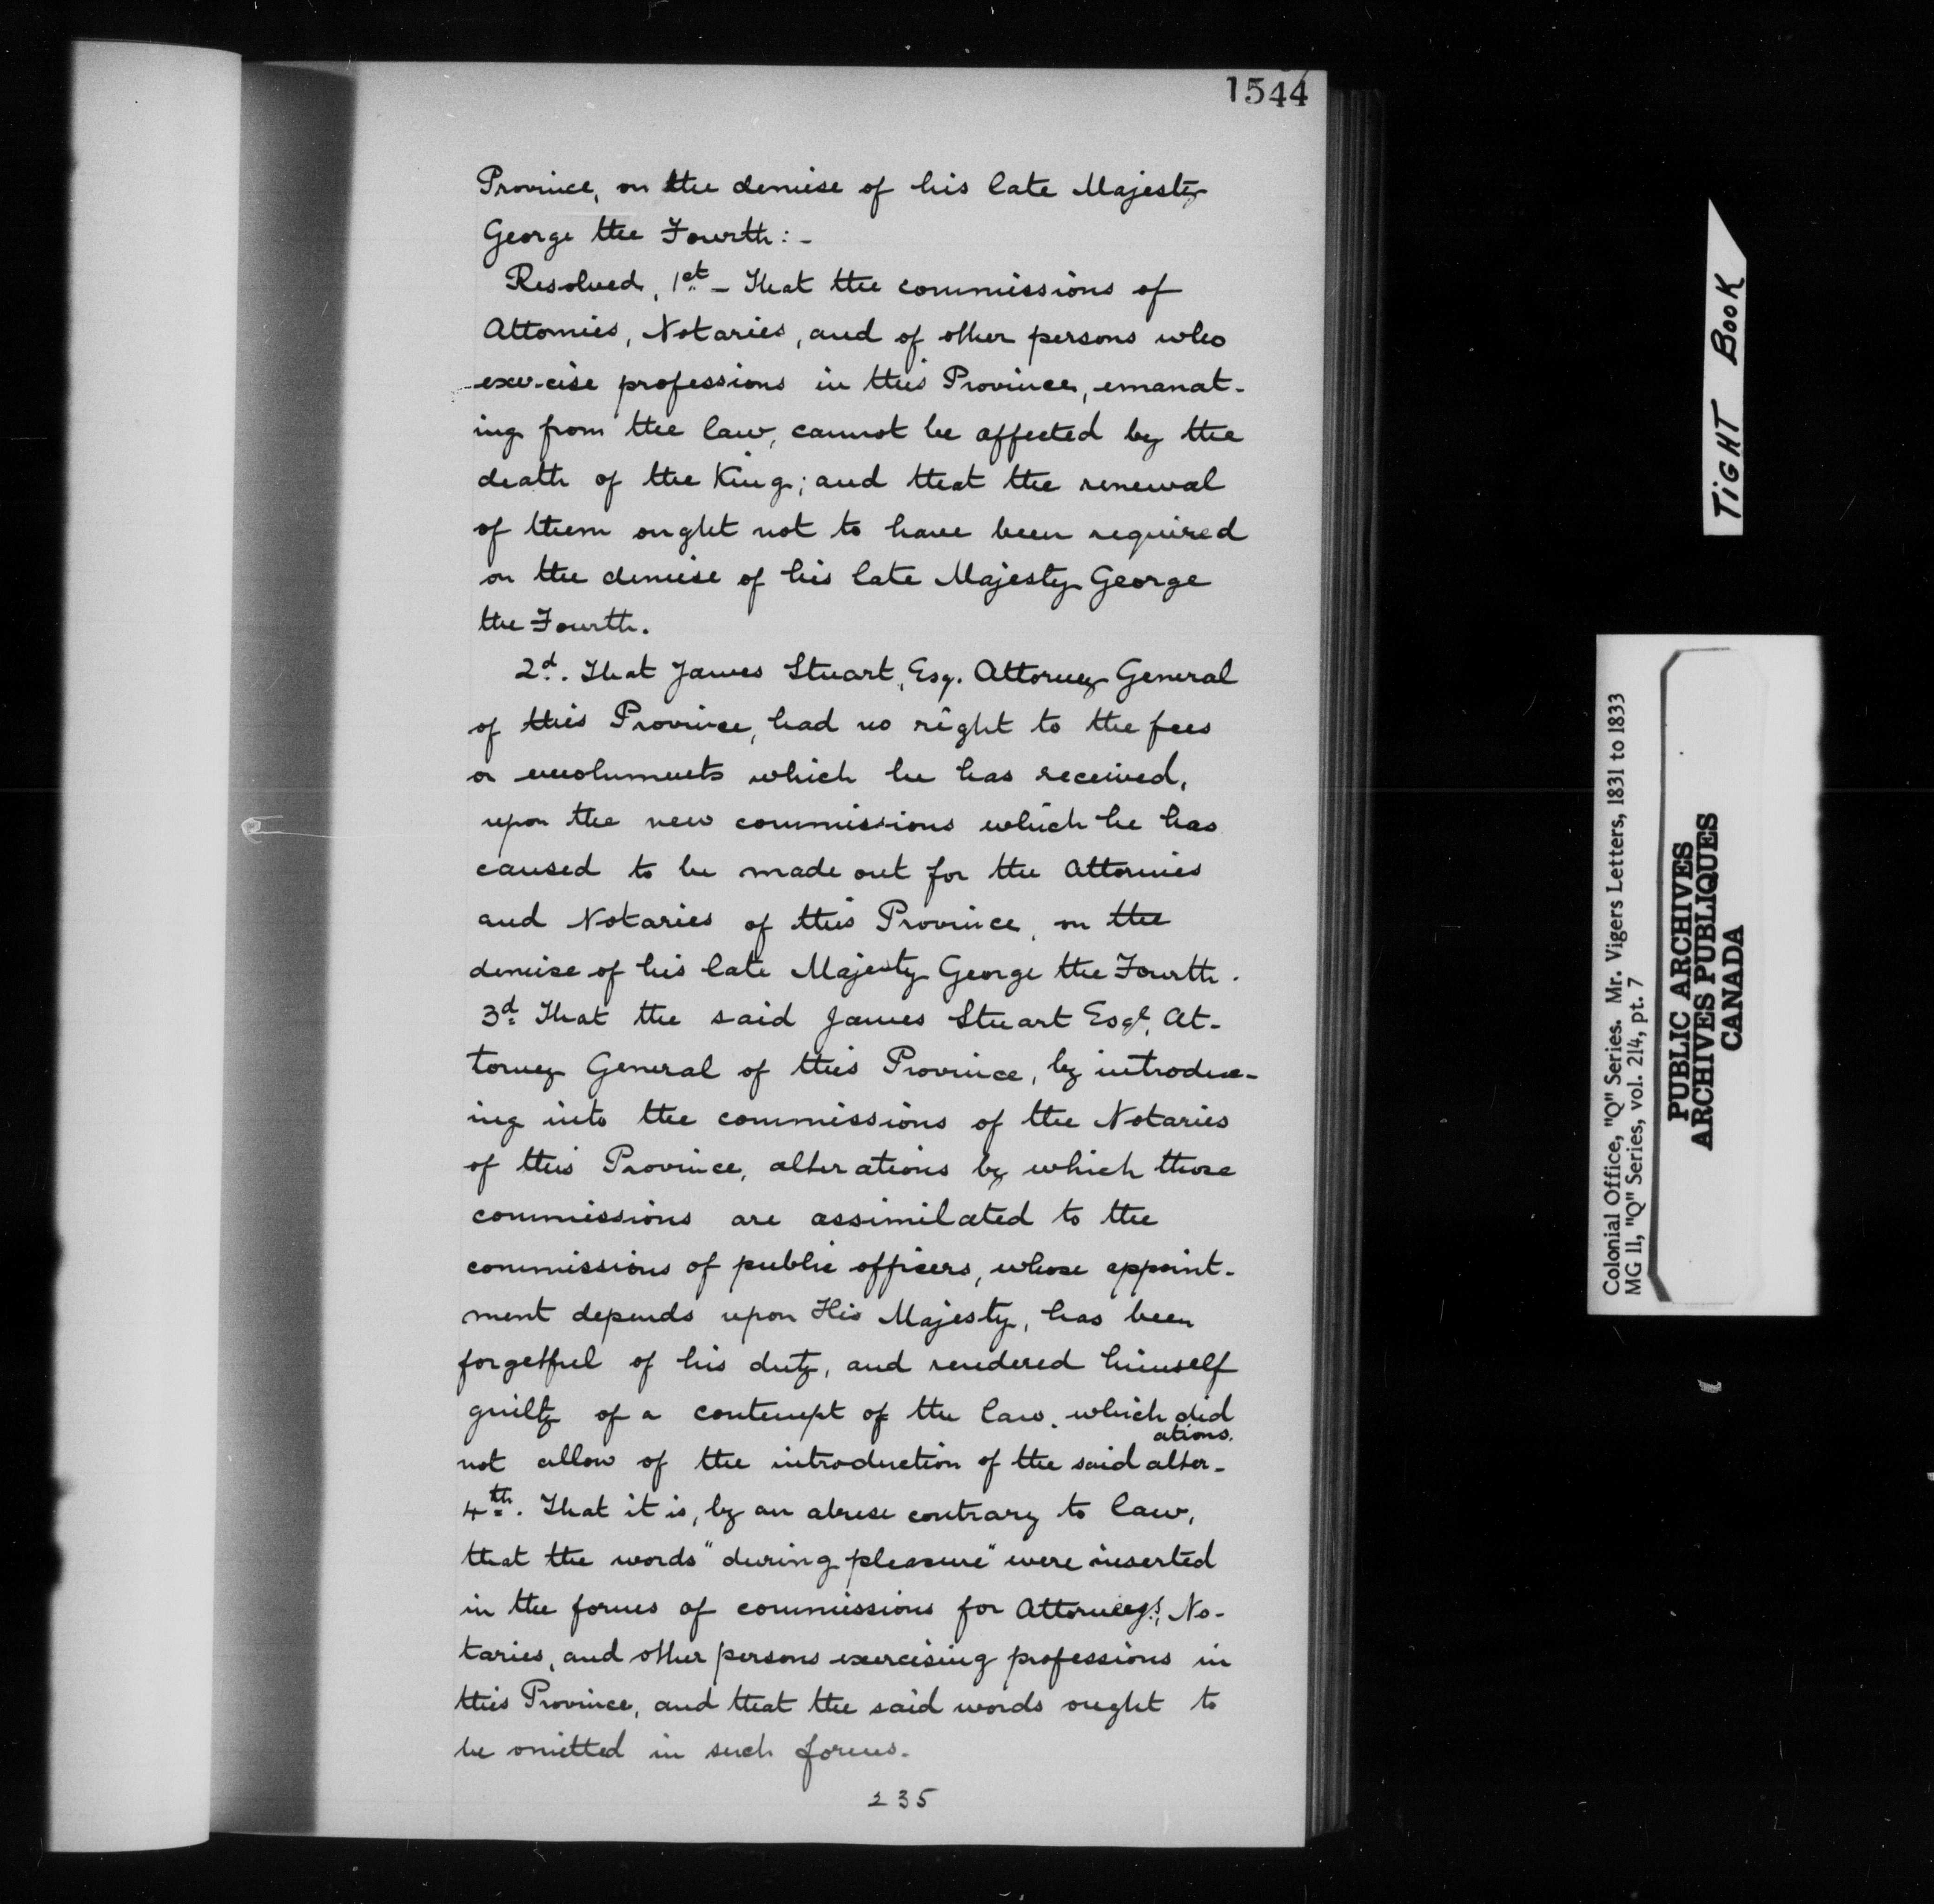 1544
Province, on the demise of his late Majesty
George the Fourth:-
Resolved, 1st - That the commissions of
Attornies, Notaries, and of other persons who
exercise professions in this Province, emanat-
ing from the law, cannot be affected by the
death of the King; and that the renewal
of them ought not to have been required
on the demise of his late Majesty George
the Fourth.
2d. That James Stuart, Esq. Attorney General
of this Province, had no right to the fees
or emoluments which he has received,
upon the new commissions which he has
caused to be made out for the Attornies
and Notaries of this Province, on the
demise of his late Majesty George the Fourth.
3d. That the said James Stuart Esqr, At-
torney General of this Province, by introduc-
ing into the commissions of the Notaries
of this Province, alterations by which those
commissions are assimilated to the
commissions of public officers, whose appoint-
ment depends upon His Majesty, has been
forgetful of his duty, and rendered himself
guilty of a contempt of the law, which did
not allow of the introduction of the said alter-
ations.
4th. That it is, by an abuse contrary to law,
that the words "during pleasure" were inserted
in the forms of commissions for Attorneys, No-
taries, and other persons exercising professions in
this Province, and that the said words ought to
be omitted in such forms.
235
TIGHT BOOK
Colonial Office, "Q" Series. Mr. Vigers Letters, 1831 to 1833
MG 11, "Q" Series, vol. 214, pt. 7
PUBLIC ARCHIVES
ARCHIVES PUBLIQUES
CANADA